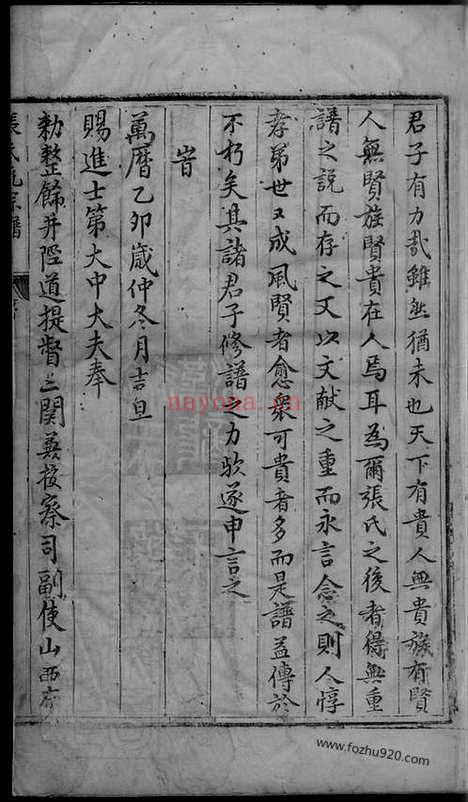 君子有力哉雖然猶未也天下有貴人無貴族有賢
人無賢族賢貴在人焉耳為爾張氏之後者得無重
譜之說而存之又以文献之重而永言念之則人惇
孝弟世又成風賢者愈衆可貴者多而是譜益傳於
不朽矣其諸君子修譜之力歟遂申言之
旹
萬曆乙卯歲仲冬月吉旦
賜進士第大中大夫奉
勑整飭井陘道提督三関兼按察司副使山西府
張氏統宗譜
nayona.cn
www.fozhu920.com